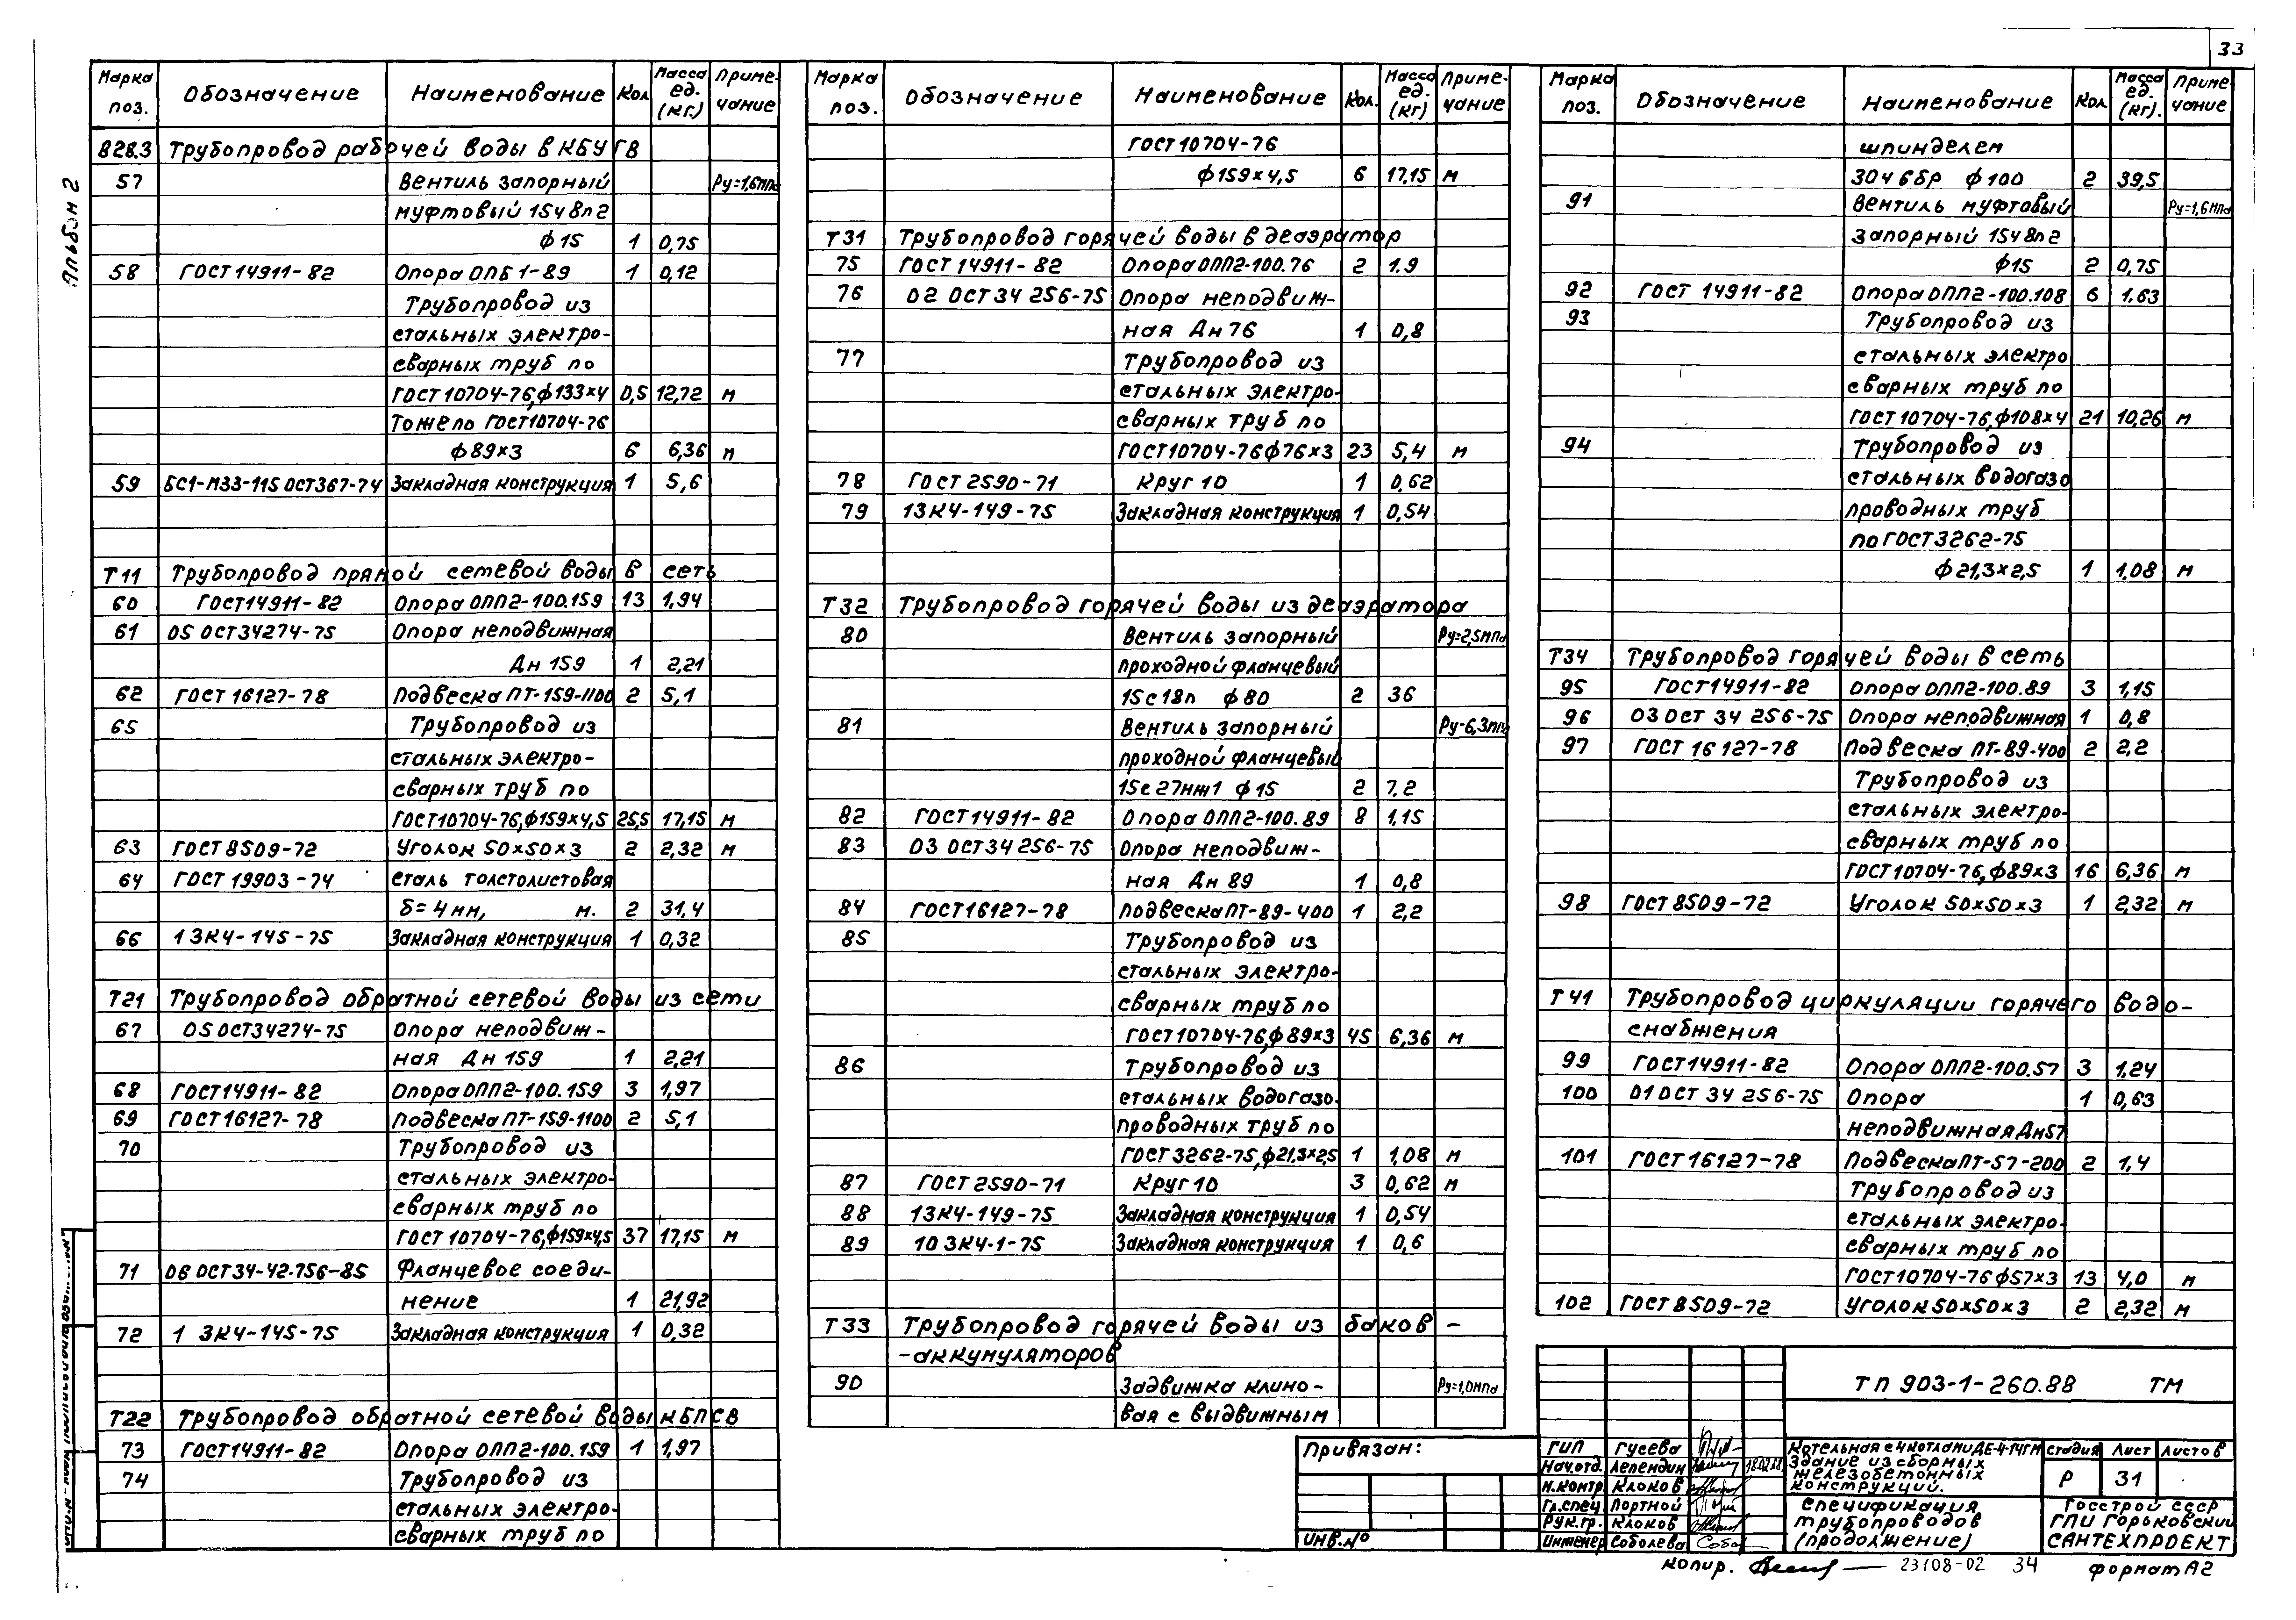 33
Альбом 2
Марка поз. Обозначение Наименование Кол. Масса ед. (кг.) Приме-чание
В28.3 Трубопровод рабочей воды в КБУ ГВ
57 Вентиль запорный Ру=1,6мпа
муфтовый 15ч8п2
ф15 1 0,75
58 ГОСТ 14911-82 Опора ОПБ1-89 1 0,12
Трубопровод из
стальных электро-
сварных труб по
ГОСТ10704-76,ф133×4 0,5 12,72 м
Тоже по ГОСТ10704-76
ф89×3 6 6,36 м
59 БС1-М33-115 ОСТ367-74 Закладная конструкция 1 5,6
Т11 Трубопровод прямой сетевой воды в сеть
60 ГОСТ14911-82 Опора ОПП2-100.159 13 1,94
61 05 ОСТ34274-75 Опора неподвижная
Дн 159 1 2,21
62 ГОСТ 16127-78 Подвеска ПТ-159-1100 2 5,1
65 Трубопровод из
стальных электро-
сварных труб по
ГОСТ10704-76,ф159×4,5 25,5 17,15 м
63 ГОСТ8509-72 Уголок 50×50×3 2 2,32 м
64 ГОСТ 19903-74 сталь толстолистовая
δ=4мм, м. 2 31,4
66 1 ЗК4-145-75 Закладная конструкция 1 0,32
Т21 Трубопровод обратной сетевой воды из сети
67 05 ОСТ34274-75 Опора неподвиж-
ная Дн 159 1 2,21
68 ГОСТ14911-82 Опора ОПП2-100.159 3 1,97
69 ГОСТ16127-78 Подвеска ПТ-159-1100 2 5,1
70 Трубопровод из
стальных электро-
сварных труб по
ГОСТ 10704-76,ф159×4,5 37 17,15 м
71 06 ОСТ34-42.756-85 Фланцевое соеди-
нение 1 21,92
72 1 ЗК4-145-75 Закладная конструкция 1 0,32
Т22 Трубопровод обратной сетевой воды к БПСВ
73 ГОСТ14911-82 Опора ОПП2-100.159 1 1,97
74 Трубопровод из
стальных электро-
сварных труб по
Марка поз. Обозначение Наименование Кол. Масса ед. (кг) Приме-чание
ГОСТ10704-76
ф159×4,5 6 17,15 м
Т31 Трубопровод горячей воды в деаэратор
75 ГОСТ 14911-82 Опора ОПП2-100.76 2 1.9
76 02 ОСТ34 256-75 Опора неподвиж-
ная Дн 76 1 0,8
77 Трубопровод из
стальных электро-
сварных труб по
ГОСТ10704-76ф76×3 23 5,4 м
78 ГОСТ 2590-71 Круг 10 1 0,62
79 13К4-149-75 Закладная конструкция 1 0,54
Т32 Трубопровод горячей воды из деаэратора
80 Вентиль запорный Ру=2,5мпа
проходной фланцевый
15с18п ф80 2 36
81 Вентиль запорный Ру=6,3мпа
проходной фланцевый
15с27нж1 ф15 2 7,2
82 ГОСТ14911-82 Опора ОПП2-100.89 8 1,15
83 03 ОСТ34 256-75 Опора неподвиж-
ная Дн 89 1 0,8
84 ГОСТ16127-78 Подвеска ПТ-89-400 1 2,2
85 Трубопровод из
стальных электро-
сварных труб по
ГОСТ10704-76,ф89×3 45 6,36 м
86 Трубопровод из
стальных водогазо-
проводных труб по
ГОСТ3262-75,ф21,3×2,5 1 1,08 м
87 ГОСТ 2590-71 Круг 10 3 0,62 м
88 13К4-149-75 Закладная конструкция 1 0,54
89 10 ЗК4-1-75 Закладная конструкция 1 0,6
Т33 Трубопровод горячей воды из баков -
-аккумуляторов
90 Задвижка клино- Ру=1,0мпа
вая с выдвижным
Марка поз. Обозначение Наименование Кол. Масса ед. (кг). Приме-чание
шпинделем
30ч6бр ф100 2 39,5
91 Вентиль муфтовый Ру=1,6мпа
запорный 15ч8п2
ф15 2 0,75
92 ГОСТ 14911-82 Опора ОПП2-100.108 6 1.63
93 Трубопровод из
стальных электро
сварных труб по
ГОСТ10704-76,ф108×4 21 10,26 м
94 Трубопровод из
стальных водогазо
проводных труб
по ГОСТ3262-75
ф21,3×2,5 1 1,08 м
Т34 Трубопровод горячей воды в сеть
95 ГОСТ14911-82 Опора ОПП2-100.89 3 1,15
96 03 ОСТ 34 256-75 Опора неподвижная 1 0,8
97 ГОСТ 16127-78 Подвеска ПТ-89-400 2 2,2
Трубопровод из
стальных электро-
сварных труб по
ГОСТ10704-76,ф89×3 16 6,36 м
98 ГОСТ8509-72 Уголок 50×50×3 1 2,32 м
Т41 Трубопровод циркуляции горячего водо-
снабжения
99 ГОСТ14911-82 Опора ОПП2-100.57 3 1.24
100 01 ОСТ 34 256-75 Опора 1 0,63
неподвижная Дн57
101 ГОСТ16127-78 Подвеска ПТ-57-200 2 1,4
Трубопровод из
стальных электро-
сварных труб по
ГОСТ10704-76 ф57×3 13 4,0 м
102 ГОСТ8509-72 Уголок 50×50×3 2 2,32 м
Привязан:
Инв.№
ТП 903-1-260.88 ТМ
ГИП Гусева
Нач.отд. Лепендин 18.02.88
Н.контр. Клоков
Гл.спец. Портной
Рук.гр. Клоков
Инженер Соболева
Котельная с 4 котлами ДЕ-4-14ГМ
Здание из сборных
железобетонных
конструкций.
Стадия Лист Листов
Р 31
Спецификация
трубопроводов
(продолжение)
Госстрой СССР
ГПИ Горьковский
САНТЕХПРОЕКТ
Копир.
23108-02 34
формат А2